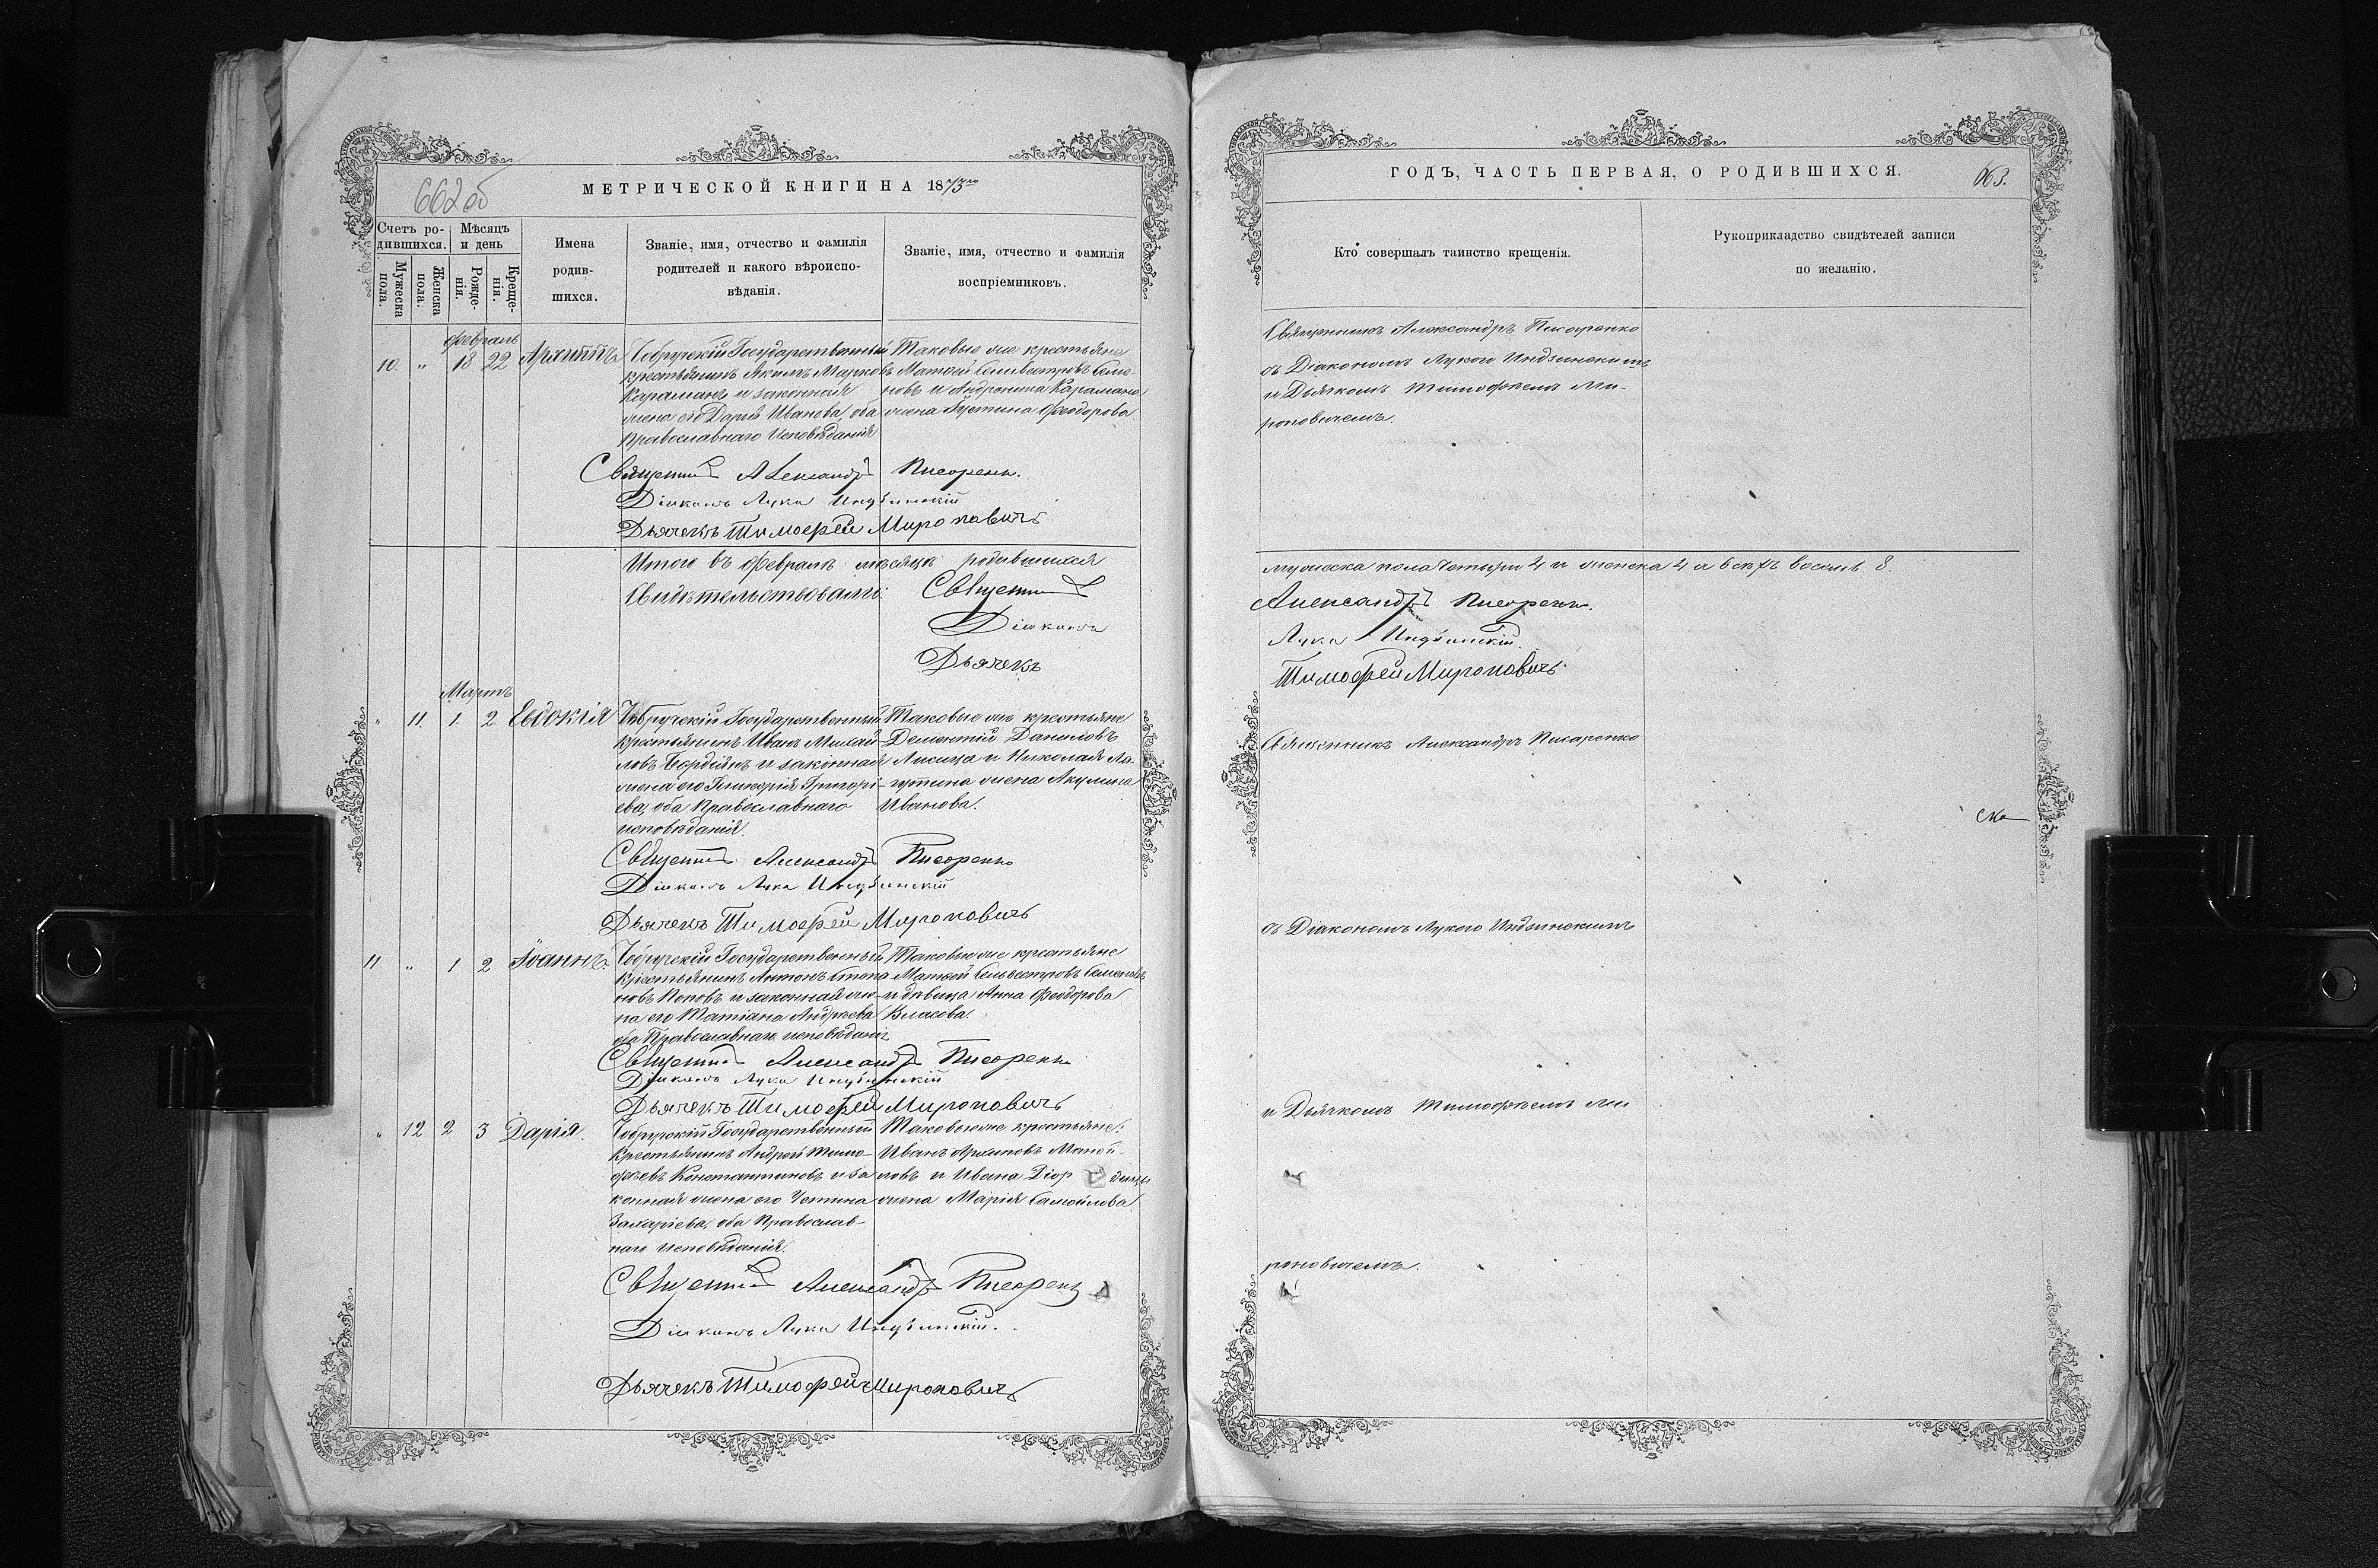 662об
МЕТРИЧЕСКОЙ КНИГИ НА 1873го
Счетъ ро-
дившихся.
Мѣсяцъ
и день
Мужеска
пола.
Женска
пола.
Рожде-
нія.
Креще-
нія.
Имена
родив-
шихся.
Званіе, имя, отчество и фамилія
родителей и какого вѣроиспо-
вѣданія.
Званіе, имя, отчество и фамилія
воспріемниковъ.
Февраль
10. " 18 22 Архиппъ
Чобручскій Государственный
крестьянинъ Акимъ Марковъ
Караманъ и законная
жена его Дарія Иванова, оба
Православнаго Исповѣданія
Таковые же крестьяне
Матѳей Селивестровъ Семе-
новъ и Андроника Карамана
жена Іустина Ѳеодорова
Священникъ Александръ Писаренко.
Діаконъ Лука Индзинскій
Дьячекъ Тимофей Мироновичъ
Итого въ Февралѣ мѣсяцѣ родившихся
Свидѣтельствовали: Священникъ
Діаконъ
Дьячекъ
Мартъ
" 11. 1. 2 Евдокія
Чобручскій Государственный
крестьянинъ Иванъ Михай-
ловъ Бордіянъ и законная
жена его Гликерія Григорі-
ева, оба Православнаго
исповѣданія.
Таковые же крестьяне
Дементій Даниловъ
Лисица и Николая Ла-
гутина жена Акулина
Иванова.
Священникъ Александръ Писаренко
Діаконъ Лука Индзинскій
Дьячекъ Тимофей Мироновичъ
11 " 1 2 Іоаннъ.
Чобручскій Государственный
крестьянинъ Антонъ Степа-
новъ Поповъ и законная же-
на его Татіана Андреева
оба Православнаго исповѣданія
Таковые же крестьяне
Матѳей Сельвестровъ Семеновъ
и дѣвица Анна Ѳеодорова
Власова.
Священникъ Александръ Писаренко
Діаконъ Лука Индзинскій
Дьячекъ Тимофей Мироновичъ
" 12 2 3 Дарія.
Чобручскій Государственный
крестьянинъ Андрей Тимо-
феевъ Константиновъ и за
конная жена его Устина
Захаріева, оба Православ-
наго Исповѣданія.
Таковые же крестьяне:
Иванъ Архиповъ Маной-
ловъ и Ивана Діор
жена Марія Самойлова
Священникъ Александръ Писаренко
Діаконъ Лука Индзинскій.
Дьячекъ Тимофей Мироновичъ
ГОДЪ, ЧАСТЬ ПЕРВАЯ, О РОДИВШИХСЯ.
663.
Кто совершалъ таинство крещенія.
Рукоприкладство свидѣтелей записи
по желанію.
Священникъ Александръ Писаренко
съ Діакономъ Лукою Индзинскимъ
и Дьячкомъ Тимофеемъ Ми-
роновичемъ.
мужеска пола четыри 4 и женска 4 а всѣхъ восемь 8.
Александръ Писаренко.
Лука Индзинскій.
Тимофей Мироновичъ.
Священникъ Александръ Писаренко
съ Діакономъ Лукою Индзинскимъ
и Дьячкомъ Тимофеемъ Ми
роновичемъ.